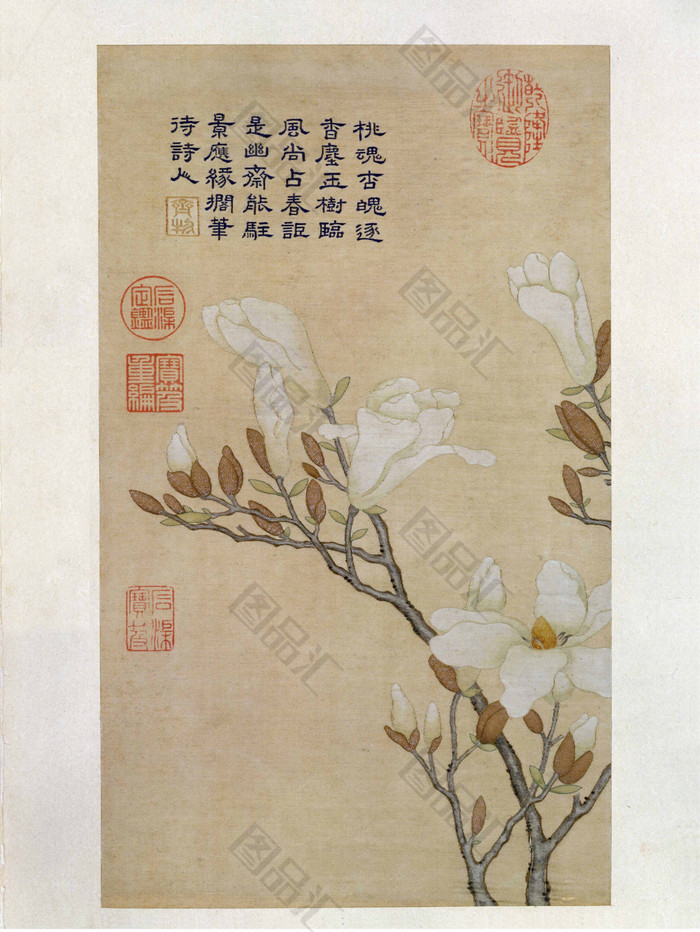 桃魂杏魄逐
香塵玉樹臨
風尚占春詎
是幽齋能駐
景應緣擱筆
待詩人
乾隆御覽之寶
石渠定鑑
寶笈重編
石渠寶笈
图品汇
图品汇
图品汇
图品汇
图品汇
图品汇
图品汇
图品汇